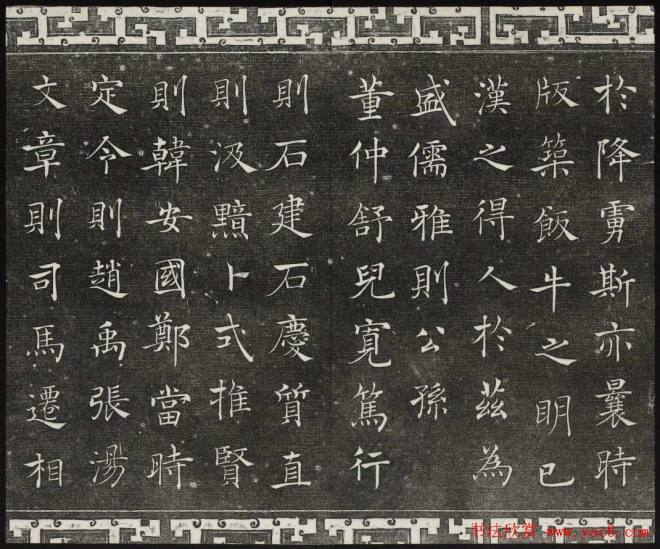 於降虜斯亦曩時
版築飯牛之明已
漢之得人於茲為
盛儒雅則公孫
董仲舒兒寬篤行
則石建石慶質直
則汲黯卜式推賢
則韓安國鄭當時
定令則趙禹張湯
文章則司馬遷相
书法欣赏
www.yac8.com